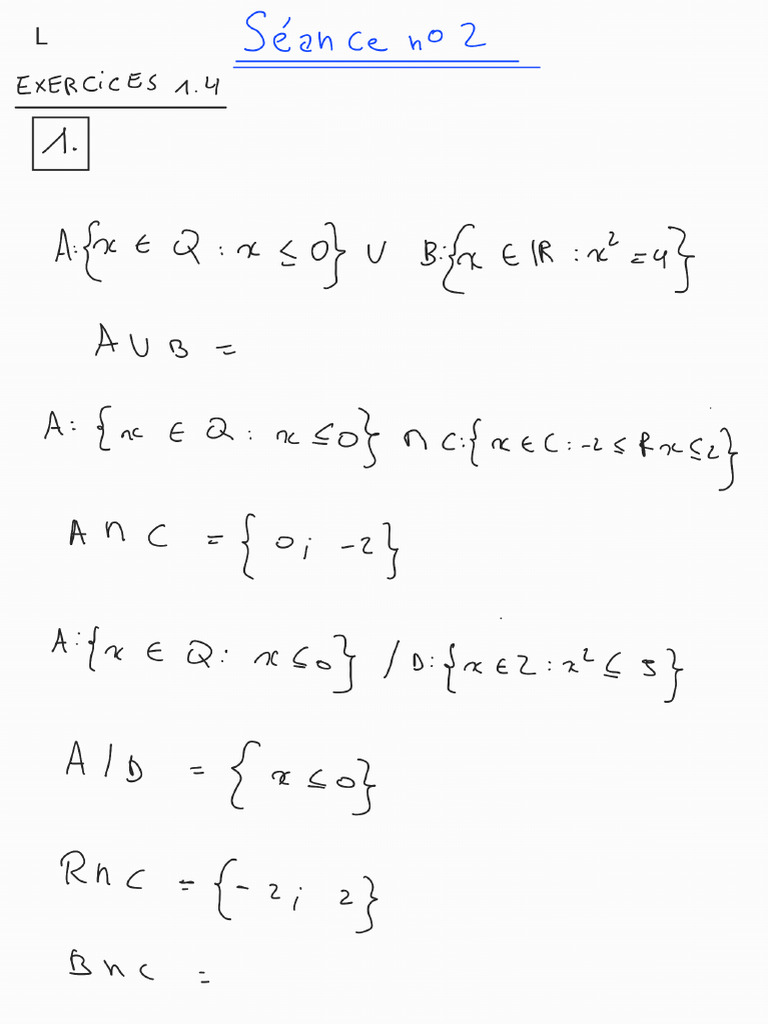 L
Séance n° 2
EXERCICES 1.4
1.
A:{x ∈ Q : x ≤ 0} ∪ B:{x ∈ IR : x² = 4}
A ∪ B =
A: {x ∈ Q : x ≤ 0} ∩ C:{x ∈ C : -2 ≤ Rx ≤ 2}
A ∩ C = {0; -2}
A:{x ∈ Q : x ≤ 0} / D:{x ∈ Z : x² ≤ 5}
A / D = {x ≤ 0}
R ∩ C = {-2; 2}
B ∩ C =